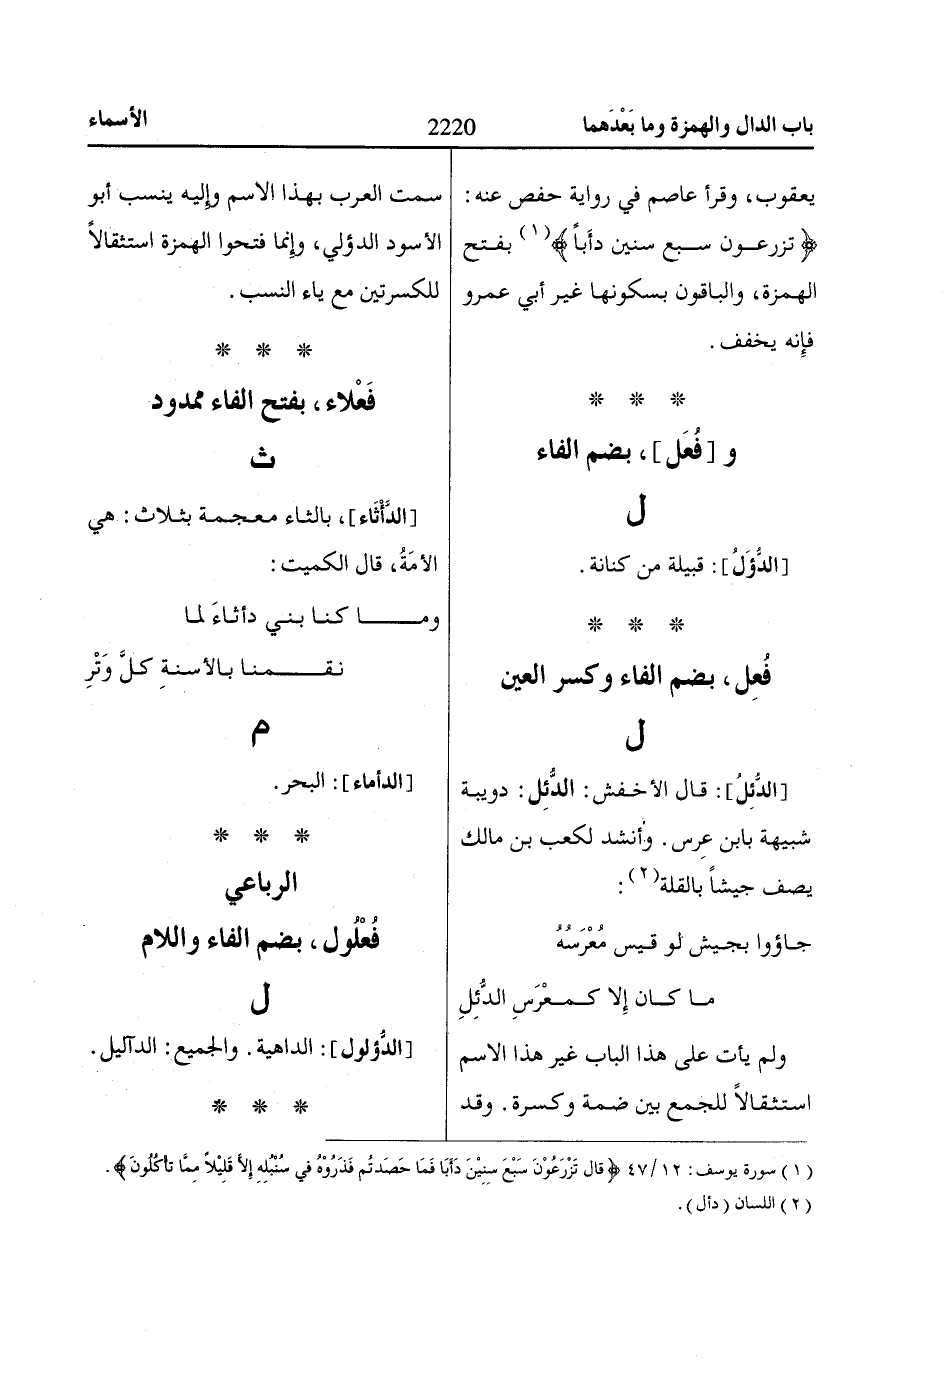 باب الدال والهمزة وما بَعْدَهما
2220
الأسماء
يعقوب، وقرأ عاصم في رواية حفص عنه:
﴿ تزرعـون سـبع سنين دأباً﴾(١) بفتح
الهمزة، والباقون بسكونها غير أبي عمرو
فإنه يخفف.
* * *
و [فُعَل]، بضم الفاء
ل
[الدُّؤَلُ]: قبيلة من كنانة.
* * *
فُعِل، بضم الفاء وكسر العين
ل
[الدُّئِلُ]: قال الأخفش: الدُّئِل: دويبة
شبيهة بابن عِرس. وأنشد لكعب بن مالك
يصف جيشاً بالقلة(٢):
جاؤوا بجيش لو قيس مُعْرَسُهُ
ما كان إلا كمعْرَسِ الدُّئِلِ
ولم يأت على هذا الباب غير هذا الاسم
استثقالاً للجمع بين ضمة وكسرة. وقد
سمت العرب بهذا الاسم وإليه ينسب أبو
الأسود الدؤلي، وإنما فتحوا الهمزة استثقالاً
للكسرتين مع ياء النسب.
* * *
فَعْلاء، بفتح الفاء ممدود
ث
[الدَّأْثَاء]، بالثاء معجمة بثلاث: هي
الأمَةُ، قال الكميت:
وما كنا بني دأثاءَ لما
نقمنا بالأسنةِ كلَّ وَتْرِ
م
[الدأماء]: البحر.
* * *
الرباعي
فُعْلُول، بضم الفاء واللام
ل
[الدُّؤلول]: الداهية. والجميع: الدآليل.
* * *
(١) سورة يوسف: ١٢/ ٤٧ ﴿ قال تَزْرَعُوْنَ سَبْعَ سنِيْنَ دَأبَا فَمَا حَصَدتُم فَذَرُوْهُ في سُنْبُلِهِ إلاَّ قَلِيْلاً ممَّا تَأكُلُونَ﴾.
(٢) اللسان (دأل).